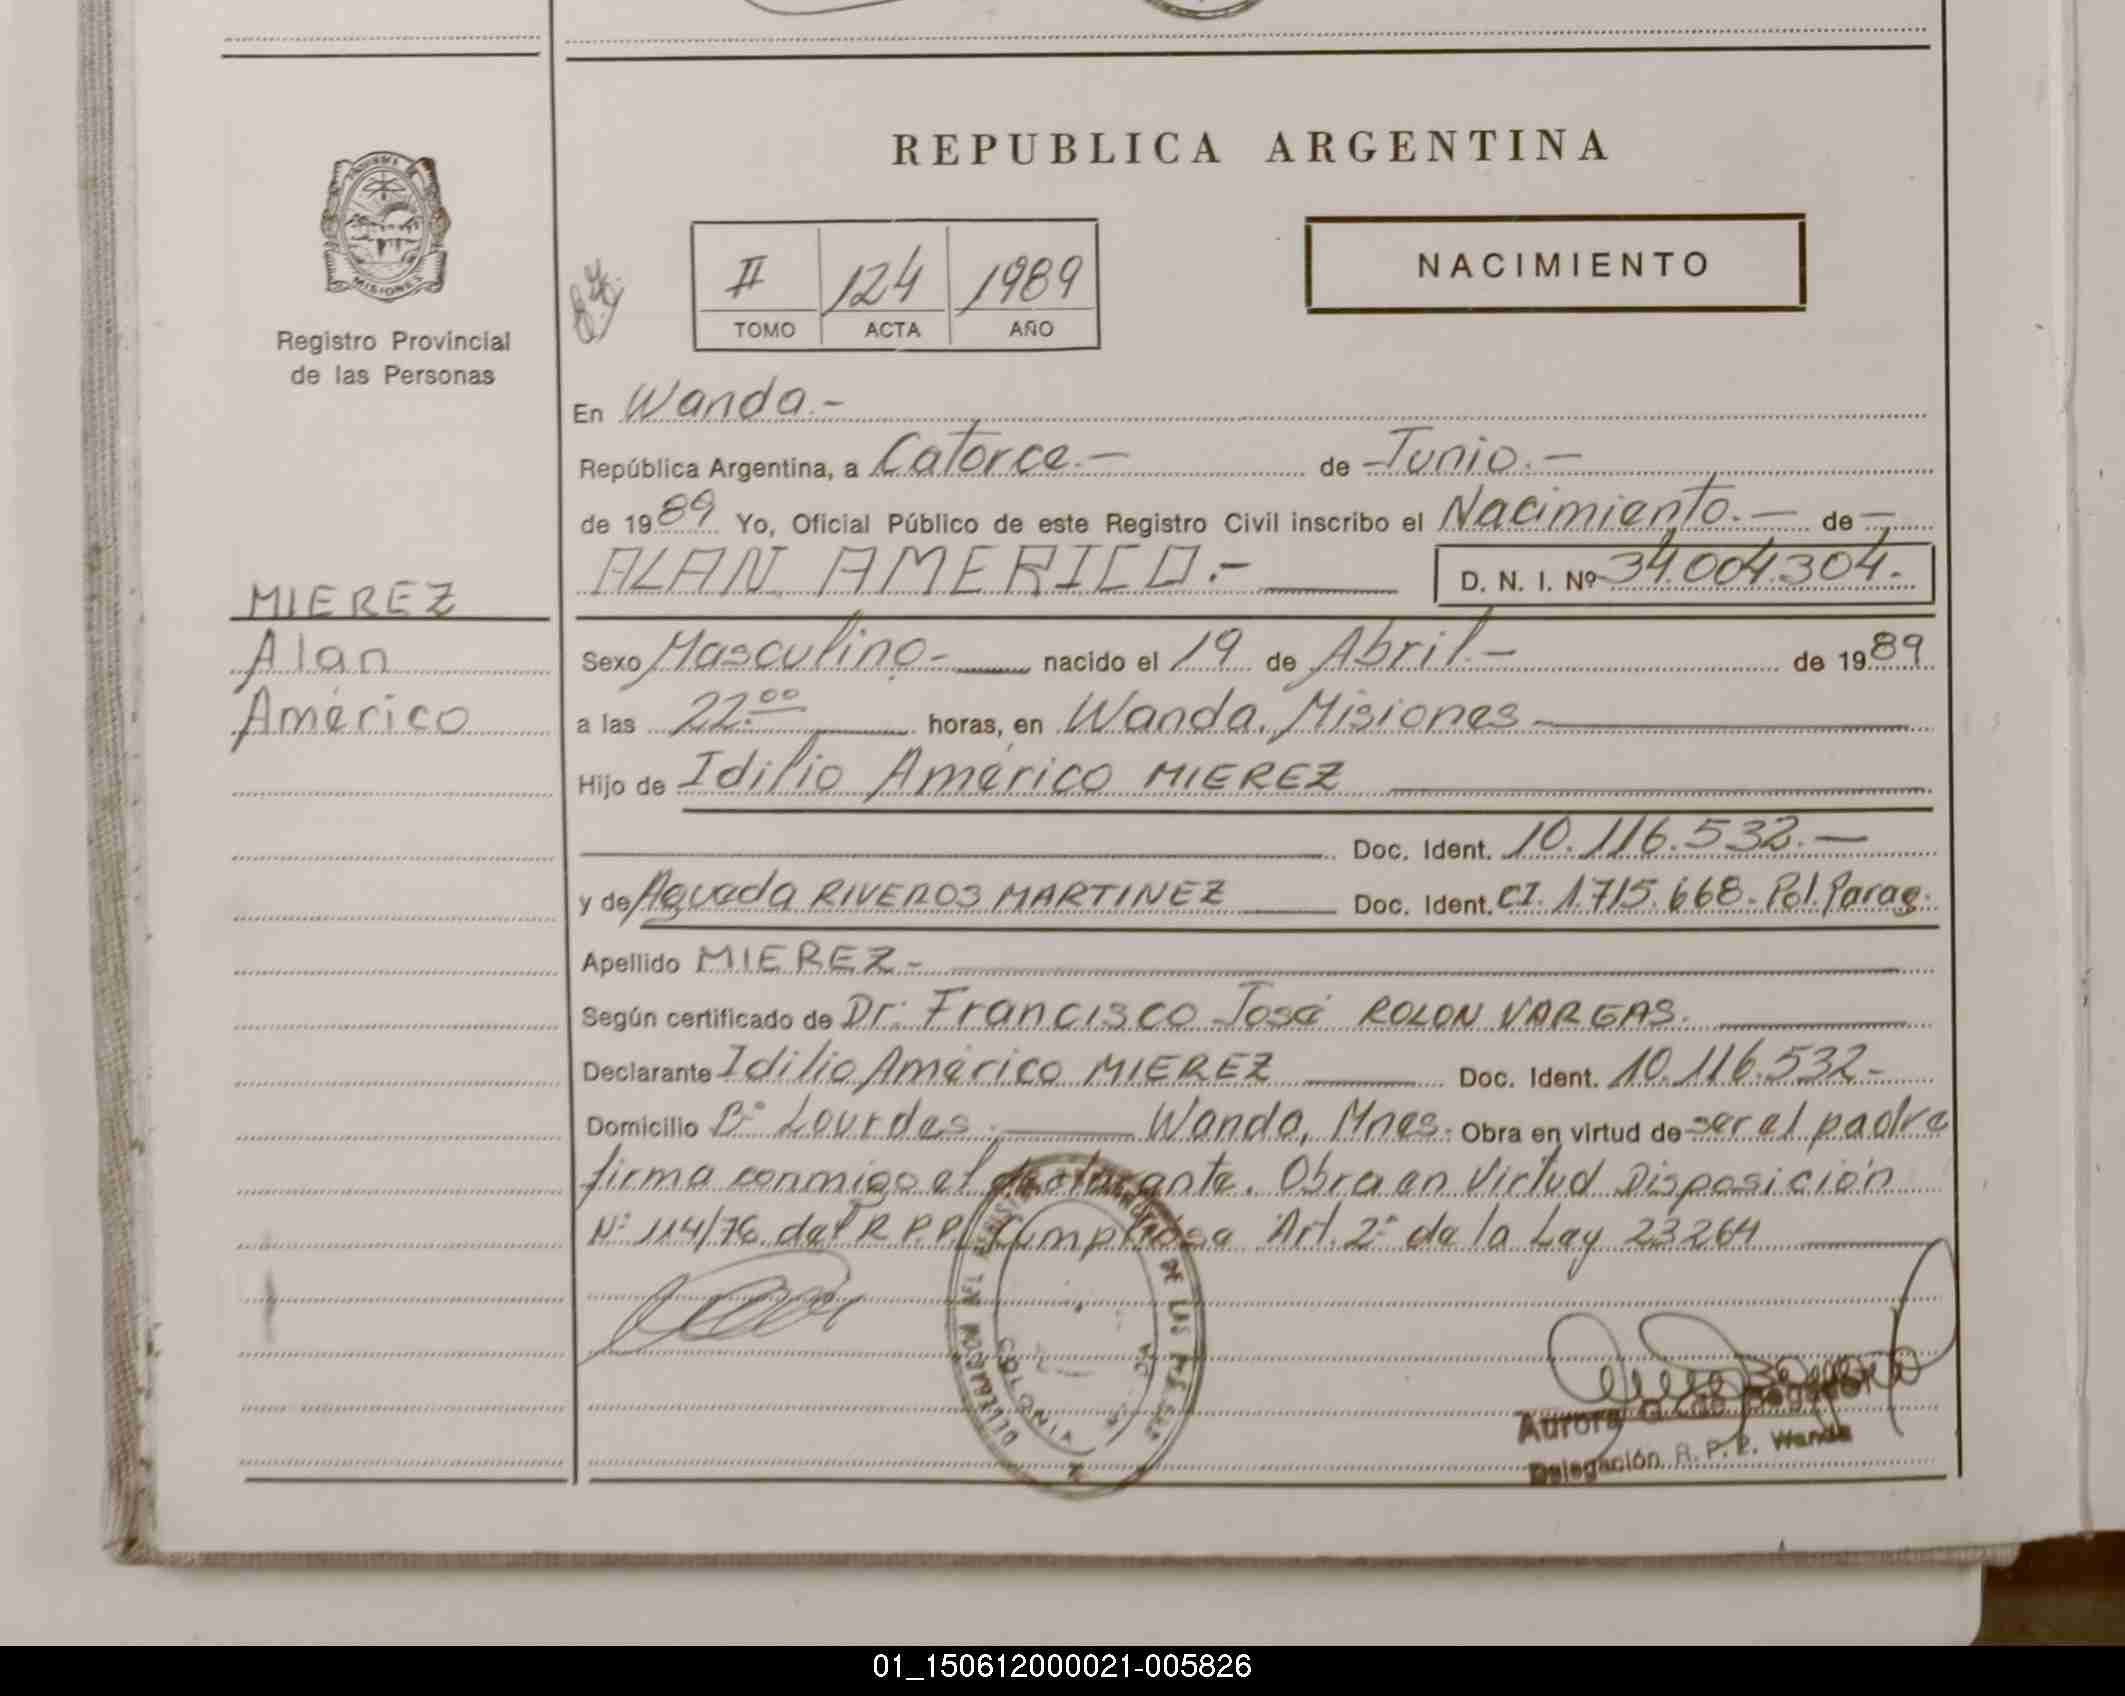 REPUBLICA ARGENTINA
MISIONES
Registro Provincial
de las Personas
II 124 1989
TOMO ACTA AÑO
NACIMIENTO
En Wanda.-
República Argentina, a Catorce.- de Junio.-
de 1989 Yo, Oficial Público de este Registro Civil inscribo el Nacimiento.- de -
ALAN AMERICO.- D. N. I. Nº 34.004.304.-
MIEREZ
Alan
Américo
Sexo Masculino.- nacido el 19 de Abril.- de 1989
a las 22:00 horas, en Wanda, Misiones
Hijo de Idilio Américo MIEREZ
Doc. Ident. 10.116.532.-
y de Agueda RIVEROS MARTINEZ Doc. Ident. CI. 1.715.668. Pol. Parag.
Apellido MIEREZ.-
Según certificado de Dr. Francisco José ROLON VARGAS.
Declarante Idilio Américo MIEREZ Doc. Ident. 10.116.532.-
Domicilio Bº Lourdes. Wanda, Mnes. Obra en virtud de ser el padre
firma conmigo el declarante. Obra en Virtud Disposición
Nº 114/76 del R.P.P. Cumplióse Art. 2º de la Ley 23264
DELEGACION DEL REGISTRO DE LAS
COLONIA
Aurora
Delegación R. P. P. Wanda
01_150612000021-005826